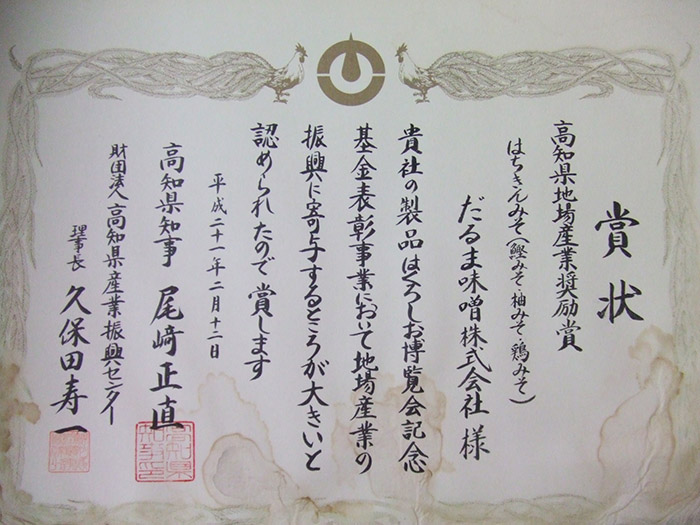 賞状
高知県地場産業奨励賞
はちきんみそ(鰹みそ・柚みそ・鶏みそ)
だるま味噌株式会社 様
貴社の製品はくろしお博覧会記念
基金表彰事業において地場産業の
振興に寄与するところが大きいと
認められたので賞します
平成二十一年二月十二日
高知県知事 尾﨑正直
財団法人高知県産業振興センター
理事長 久保田寿一
高知県知事之印